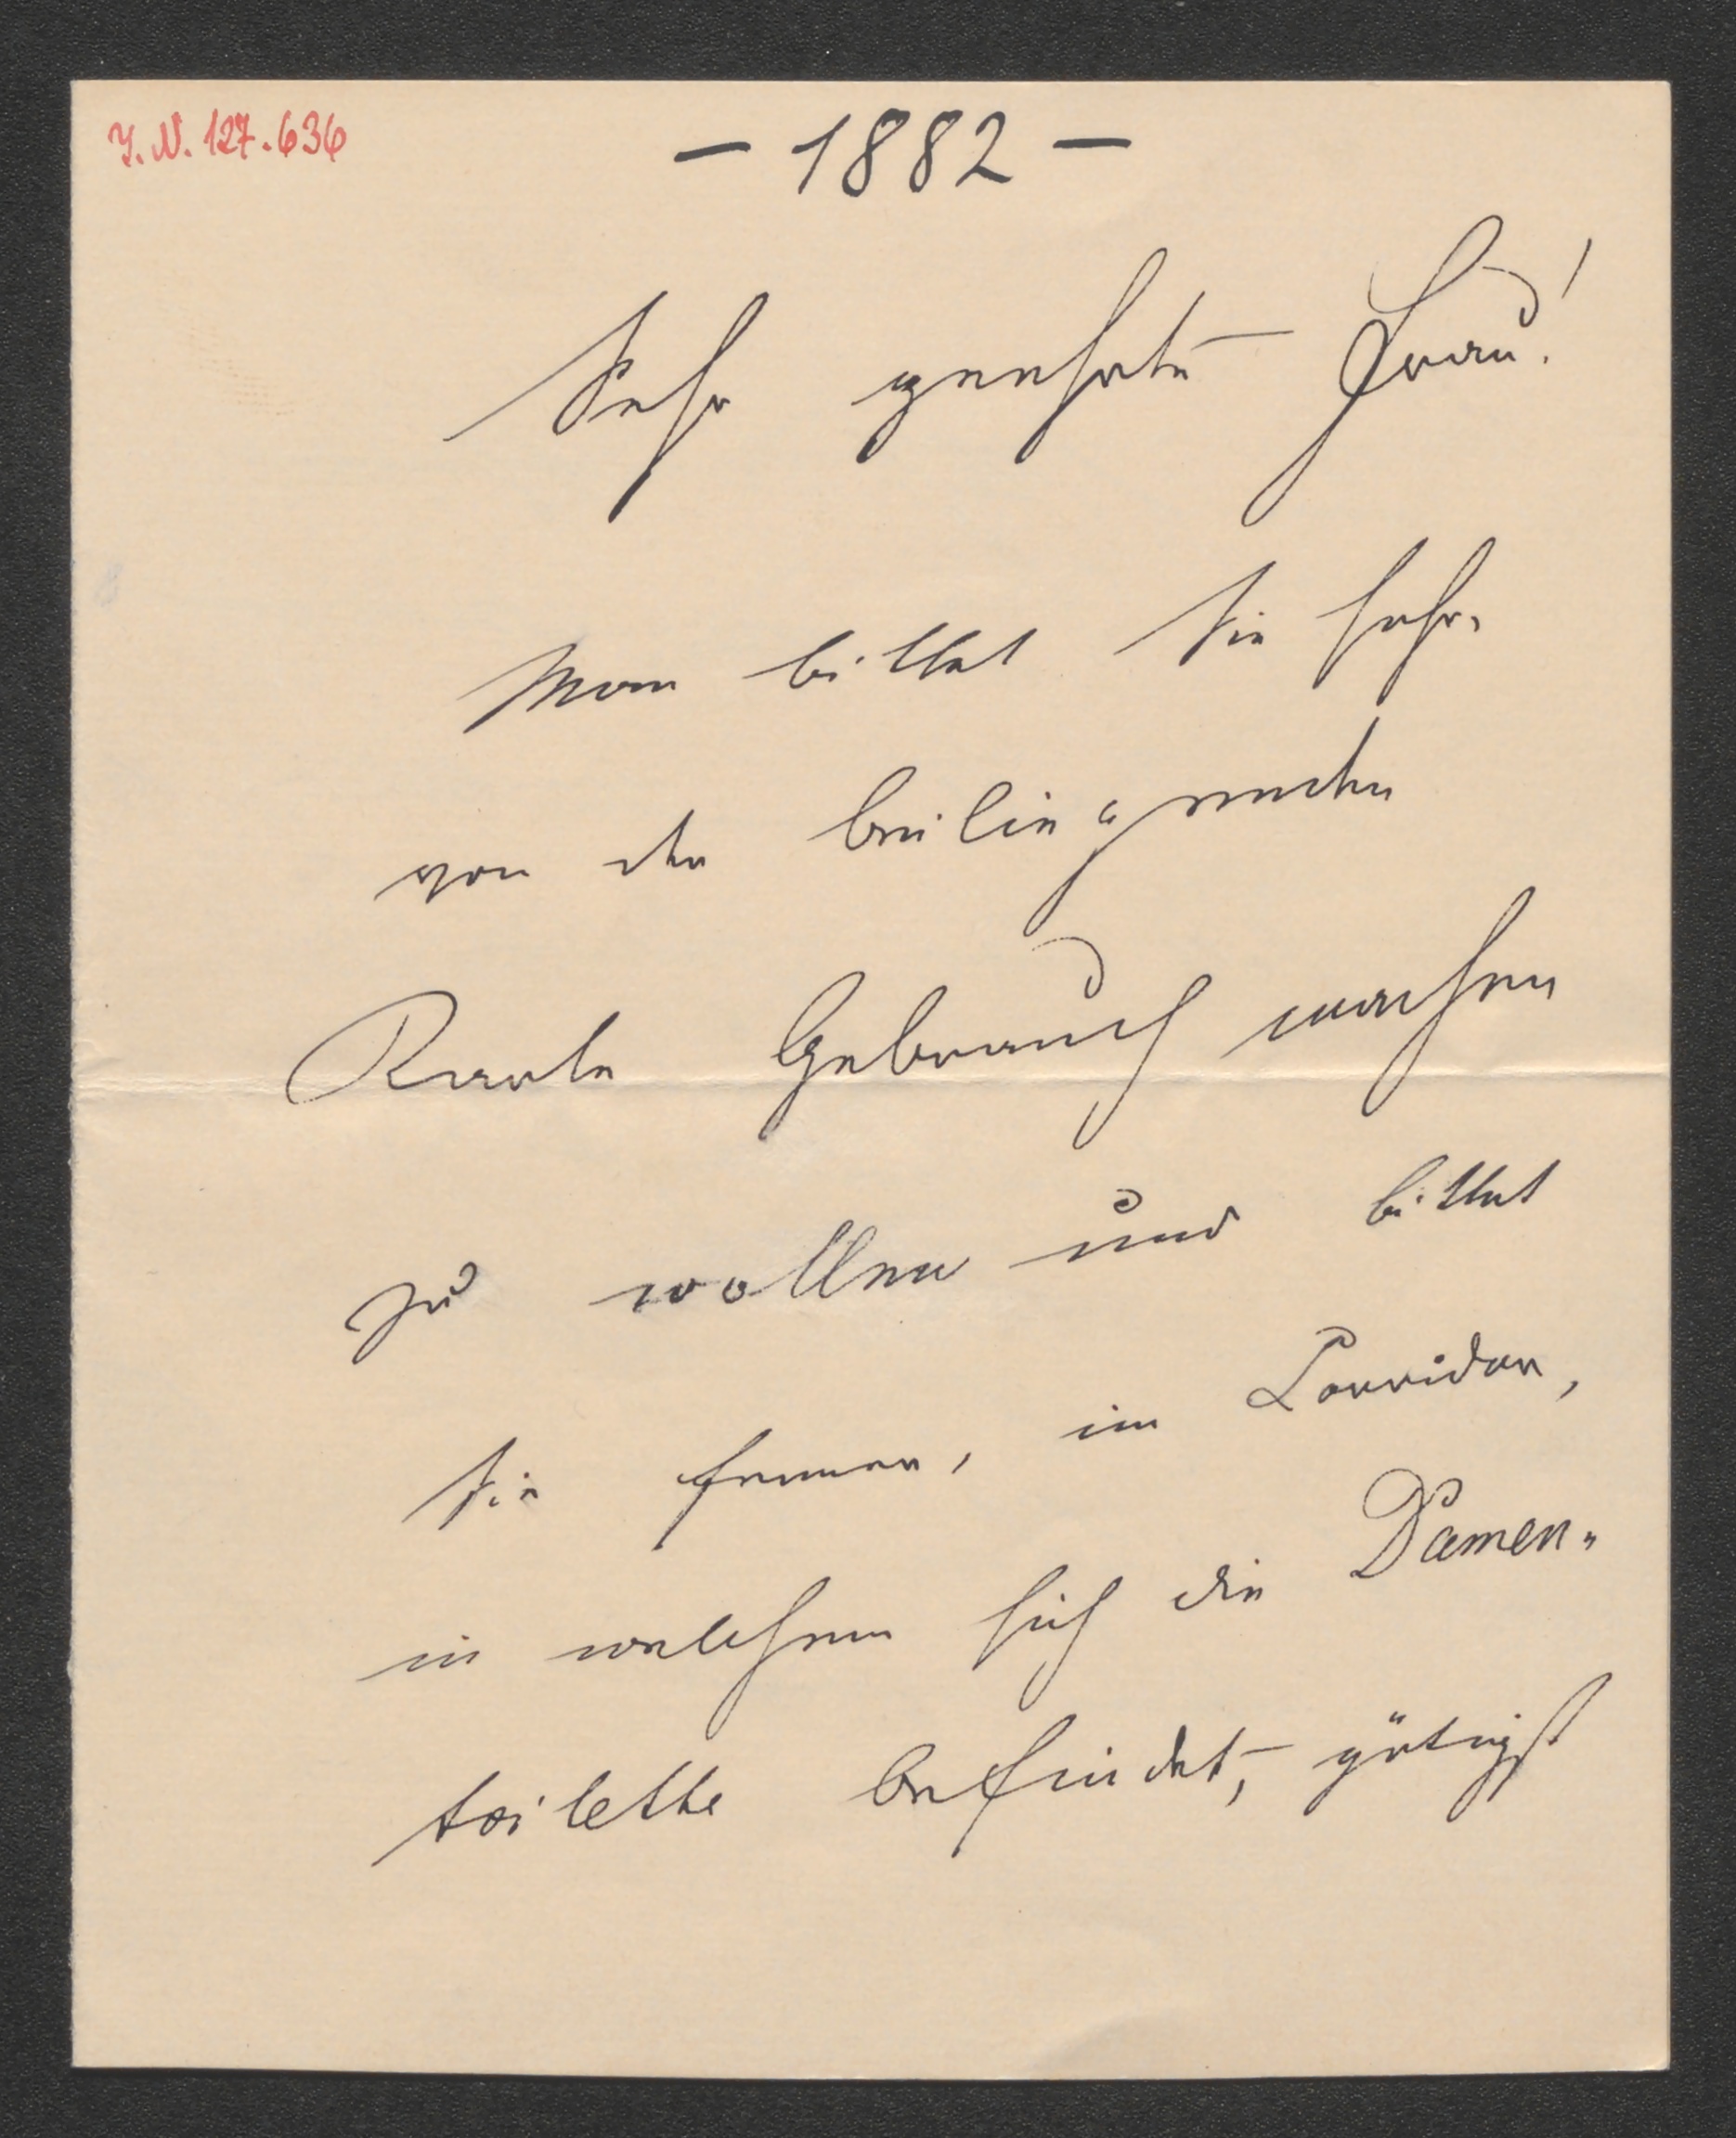 I.N. 127.636
– 1882 –
Sehr geehrte Frau!
Man bittet Sie sehr,
von der beiliegenden
Karte Gebrauch machen
zu wollen und bittet
Sie ferner, im Corridor,
in welchem sich die Damen-
toilette befindet, gütigst